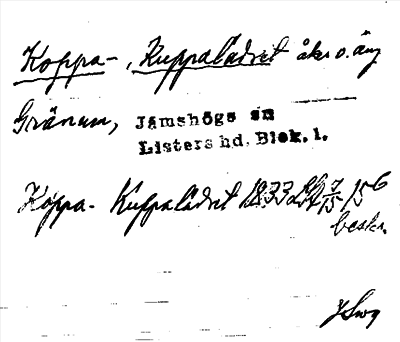 Koppa-, Kuppaladret åker o. äng
Gränum, Jämshögs sn
Listers hd, Blek. l.
Koppa- Kuppaladret 1833 LSA 7/15 156
beskr.
JSwg